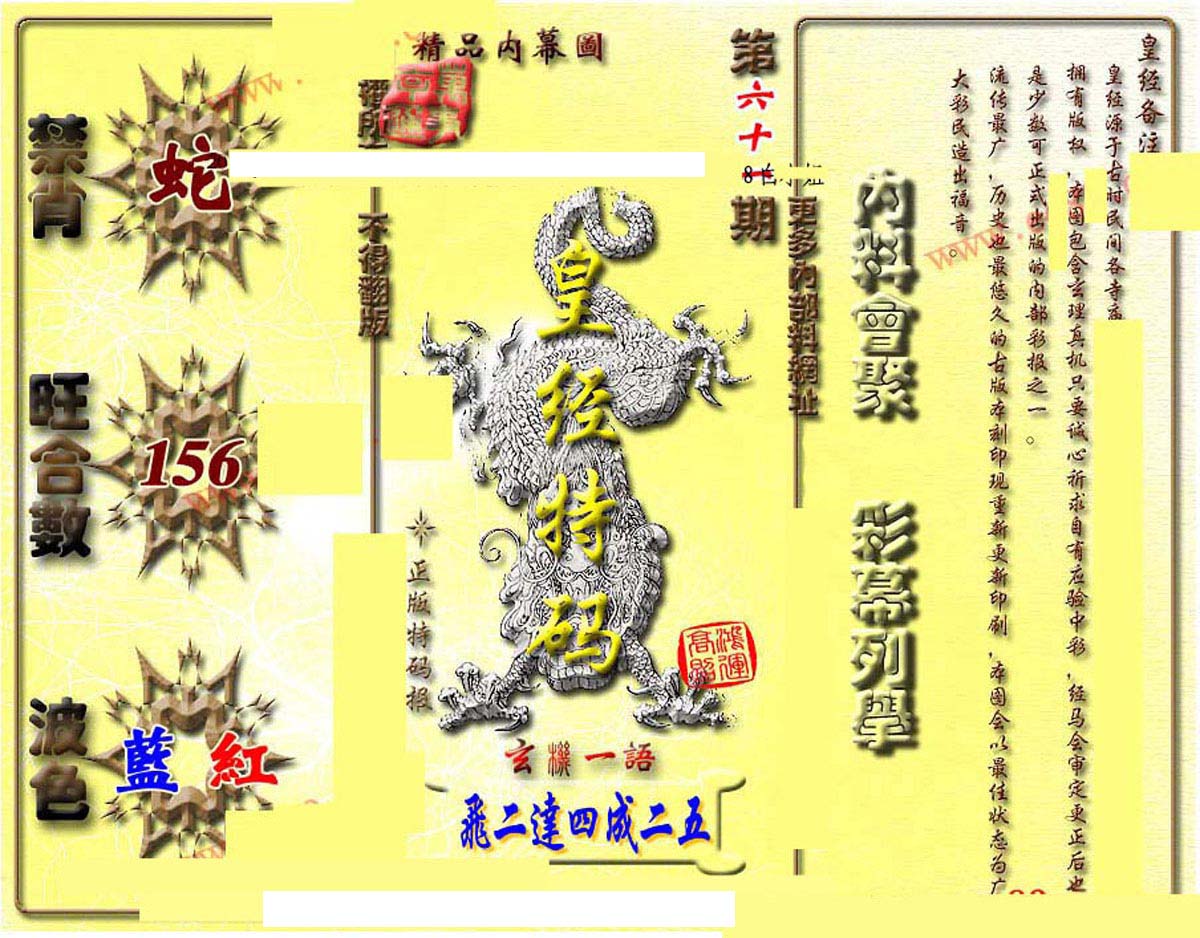 精品内幕圖
第六十一期
禁肖
蛇
旺合數
156
波色
藍 紅
不得翻版
皇经特码
正版特码报
鴻運高照
玄機一語
飛二達四成二五
更多内部料網址
内料會聚
彩幕列舉
皇经备注
皇经源于古时民间各寺庙
拥有版权,本图包含玄理真机只要诚心祈求自有应验中彩,经马会审定更正后也
是少数可正式出版的内部彩报之一。
流传最广,历史也最悠久的古版本刻印现重新更新印刷,本图会以最佳状态为广
大彩民造出福音。
www.